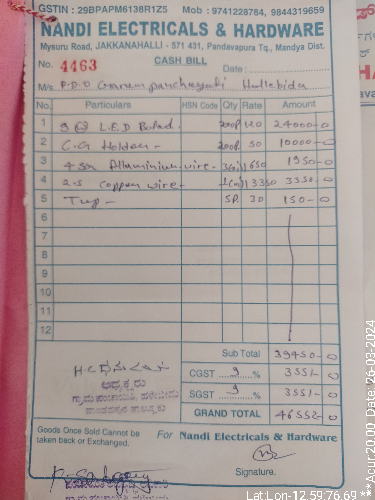 GSTIN : 29BPAPM6138R1Z5 Mob : 9741228784, 9844319659
NANDI ELECTRICALS & HARDWARE
Mysuru Road, JAKKANAHALLI - 571 431, Pandavapura Tq., Mandya Dist.
No. 4463 CASH BILL Date :
M/s P.D.O Hallebidu
No. Particulars HSN Code Qty Rate Amount
1 9 W L.E.D 200P 120 24000-0
2 C.G Holder - 200P 50 10000-0
3 wire - 650 1950-0
4 2.5 Copper wire - 3350 3350-0
5 Tup - 5P. 30 150-0
6
7
8
9
10
11
12
Sub Total 39450-0
CGST 9 % 3551-0
SGST 9 % 3551-0
GRAND TOTAL 46552-0
ಅಧ್ಯಕ್ಷರು
Goods Once Sold Cannot be
taken back or Exchanged.
For Nandi Electricals & Hardware
Signature.
Lat:Lon-12.59:76.69
Date 26-03-2024